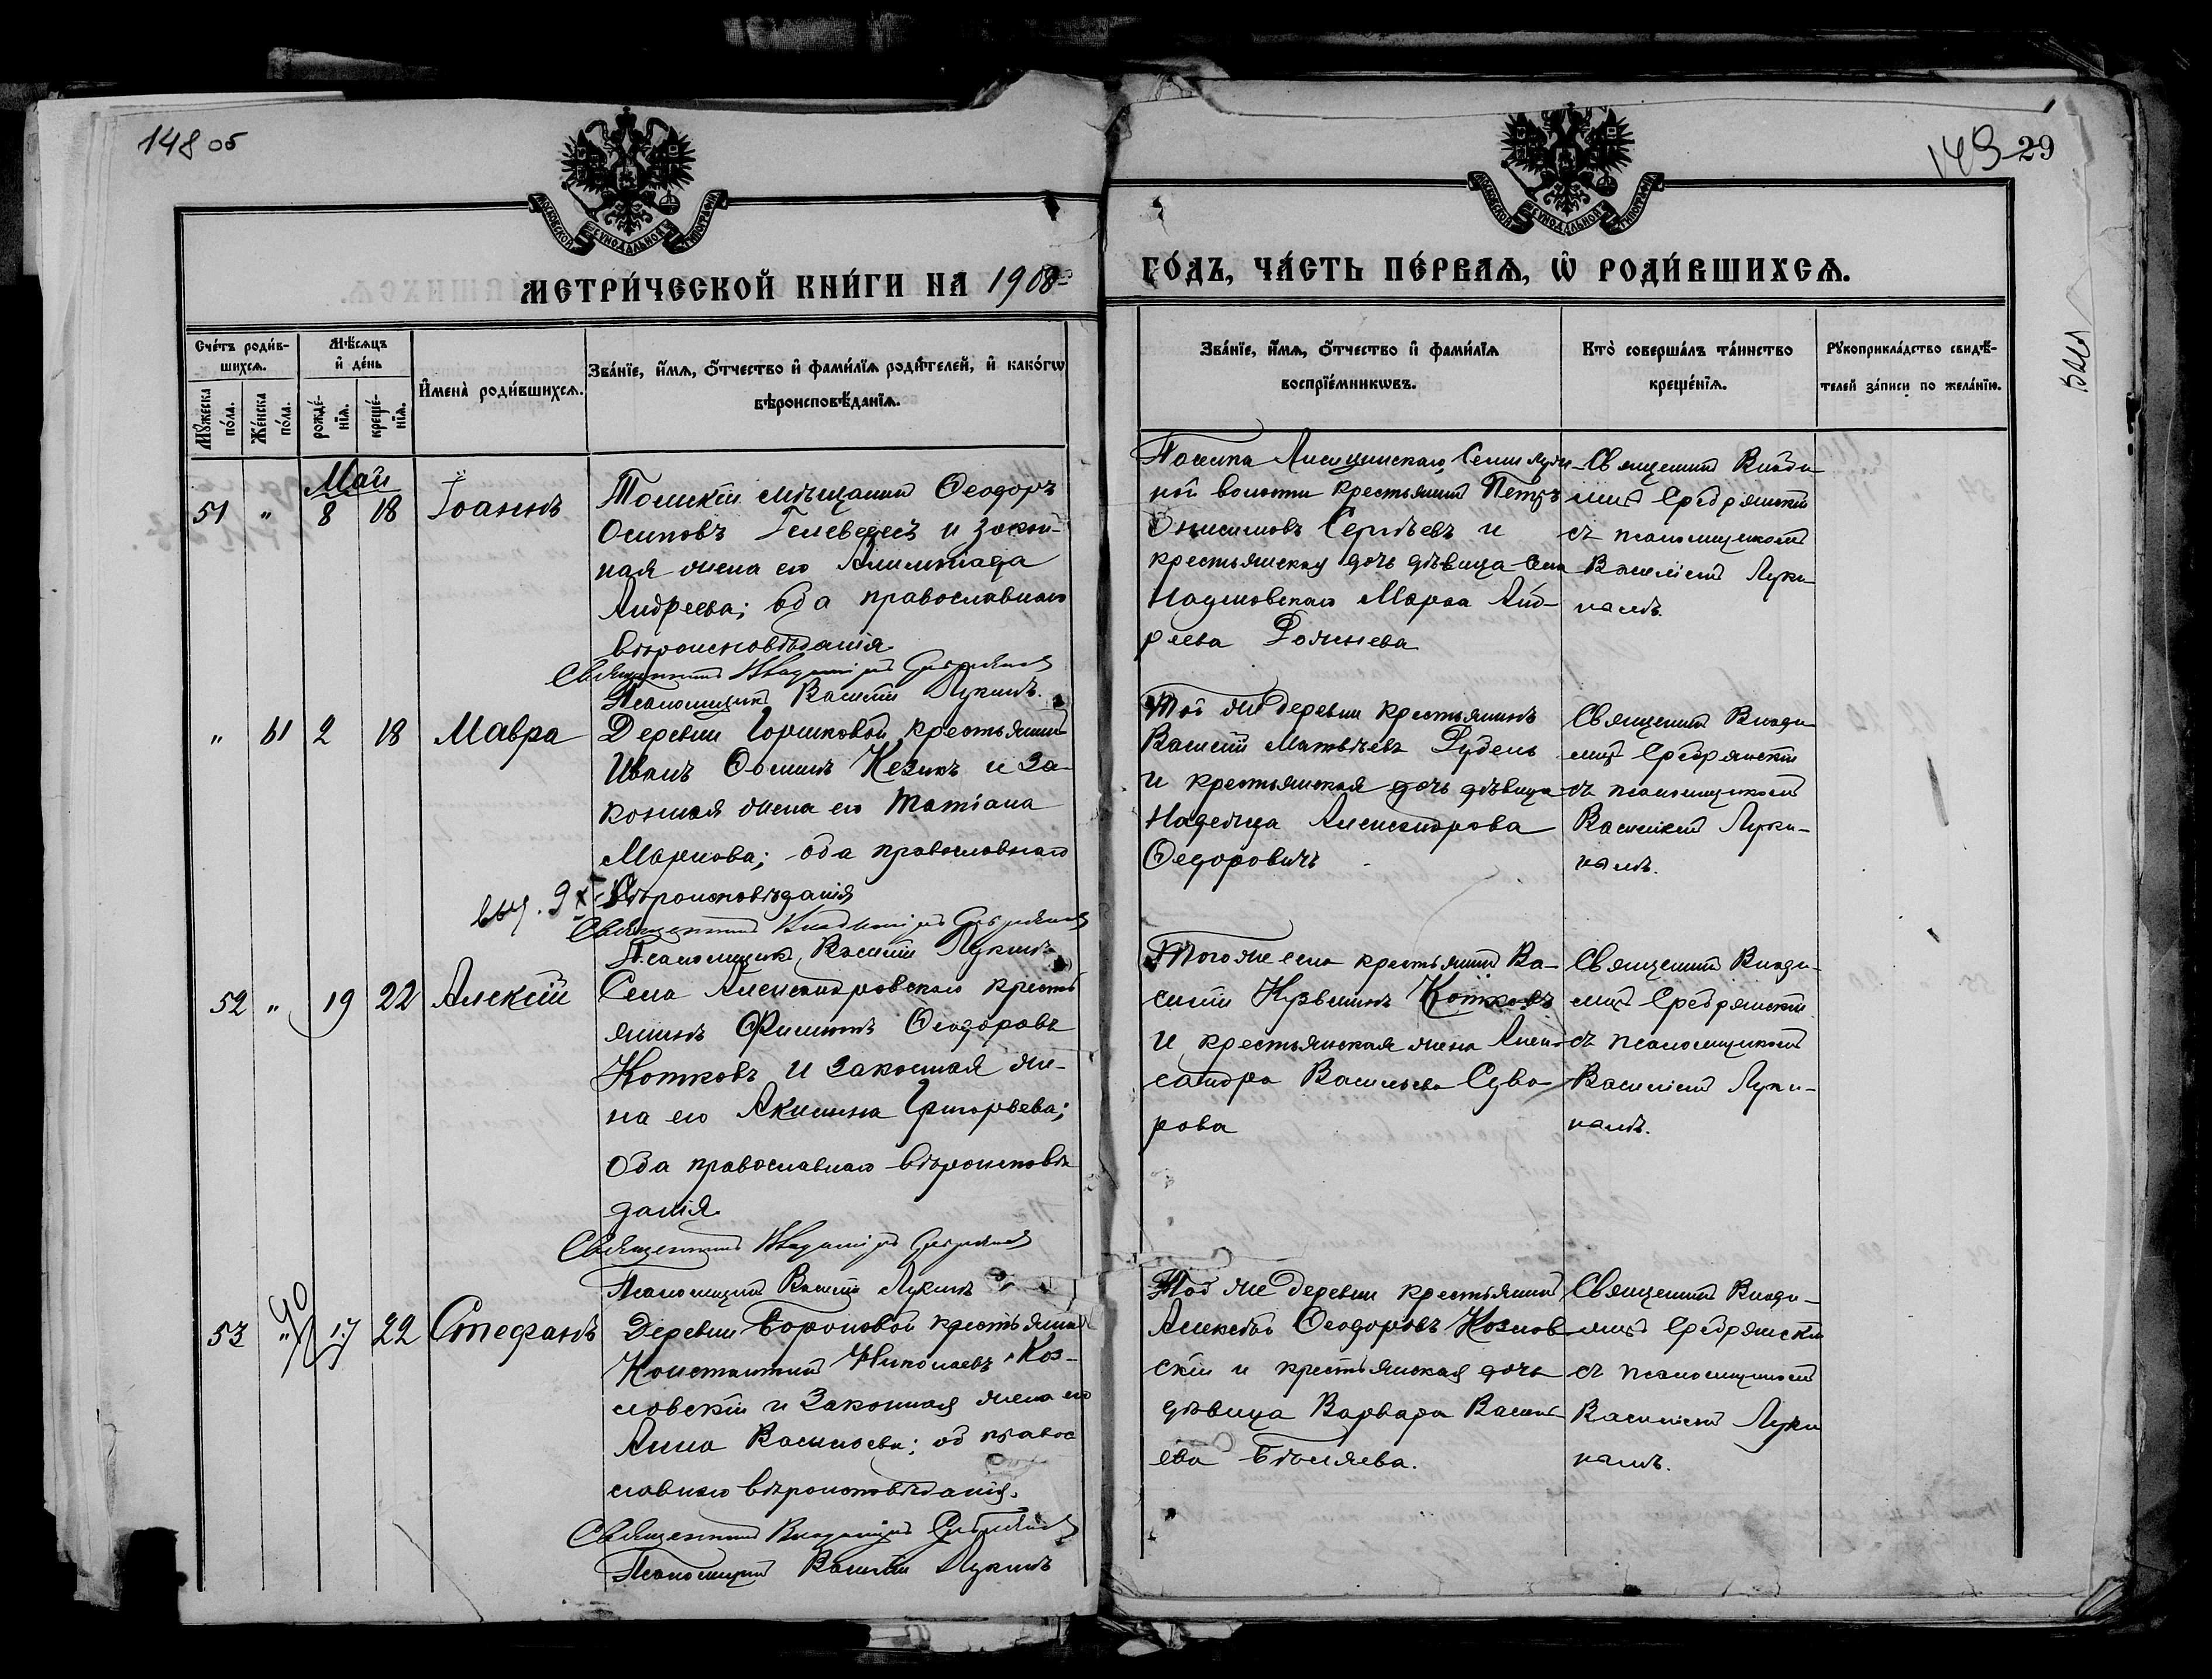 148 об
149
29
МЕТРИ́ЧЕСКОЙ КНИ́ГИ НА 1908
ГО́ДЪ, ЧА́СТЬ ПЕ́РВАѦ, Ѽ РОДИ́ВШИХСѦ.
Сче́тъ роди́в-
шихсѧ.
Мꙋ́жеска по́ла.
Же́нска по́ла.
Мѣ́сѧцъ
и҆ де́нь
рожде́-нїѧ.
креще́-нїѧ.
И҆мена̀ роди́вшихсѧ.
Зва́нїе, и҆́мѧ, ѻ҆́тчество и҆ фами́лїѧ роди́телей, и҆ како́гѡ
вѣроисповѣ́данїѧ.
Зва́нїе, и҆́мѧ, ѻ҆́тчество и҆ фами́лїѧ
воспрїе́мникѡвъ.
Кто̀ соверша́лъ та́инство
креще́нїѧ.
Рꙋкоприкла́дство свидѣ́-
телей за́писи по жела́нїю.
Май
51 " 8 18 Іоаннъ
Томскій мѣщанинъ Ѳеодоръ
Осиповъ и закон-
ная жена его
Андреева; оба православнаго
вѣроисповѣданія
Священникъ Владиміръ Сребрянскій
Псаломщикъ Василій Лукинъ.
крестьянинъ Петръ
Онисимовъ Сергѣевъ и
крестьянская дочь дѣвица села
Марѳа Анд-
реева
Священникъ Влади-
міръ Сребрянскій
съ псаломщикомъ
Василіемъ Луки-
нымъ.
" 61 2 18 Мавра
Деревни Горшковой крестьянинъ
Иванъ Ѳоминъ Кезикъ и за-
конная жена его Татіана
Маркова; оба православнаго
вѣроисповѣданія
Священникъ Владиміръ Сребрянскій
Псаломщикъ Василій Лукинъ
Той же деревни крестьянинъ
Василій Матвѣевъ Дубень
и крестьянская дочь дѣвица
Надежда Александрова
Ѳедоровичъ
Священникъ Влади-
міръ Сребрянскій
съ псаломщикомъ
Василіемъ Луки-
нымъ.
52 " 19 22 Алексій
Села Александровскаго кресть
янинъ Филиппъ Ѳеодоровъ
Котковъ и законная же-
на его Акилина Григорьева;
оба православнаго вѣроисповѣ
данія.
Священникъ Владиміръ Сребрянскій
Псаломщикъ Василій Лукинъ
Того же села крестьянинъ Ва-
силій Котковъ
и крестьянская жена Алек-
сандра Васильева Суво-
рова
Священникъ Влади-
міръ Сребрянскій
съ псаломщикомъ
Василіемъ Луки-
нымъ.
53 " 17 22 Стефанъ
Деревни Бороковой крестьянинъ
Константинъ Николаевъ Коз-
ловскій и законная жена его
Анна Васильева; об правос
славнаго вѣроисповѣданія.
Священникъ Владиміръ Сребрянскій
Псаломщикъ Василій Лукинъ
Той же деревни крестьянинъ
Алексѣй Ѳеодоровъ Козлов
скій и крестьянская дочь
дѣвица Варвара Василь
ева Бѣляева.
Священникъ Влади-
міръ Сребрянскій
съ псаломщикомъ
Василіемъ Луки
нымъ.